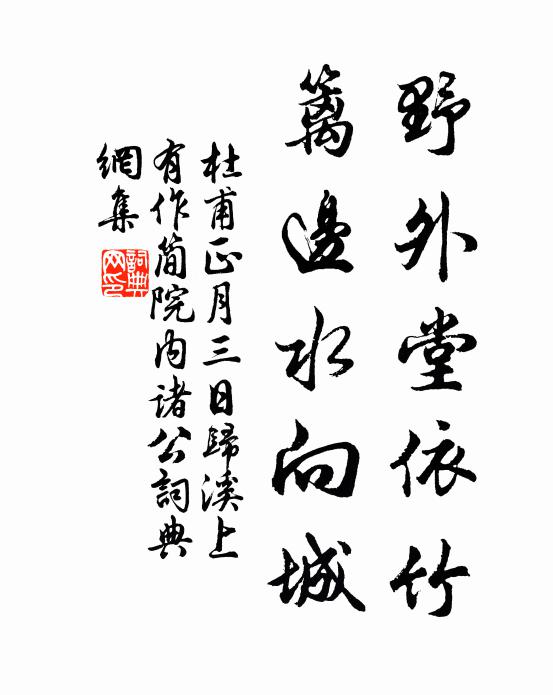 野外堂依竹
籬邊水向城
杜甫正月三日歸溪上
有作簡院內諸公詞典
網集
詞典
网印